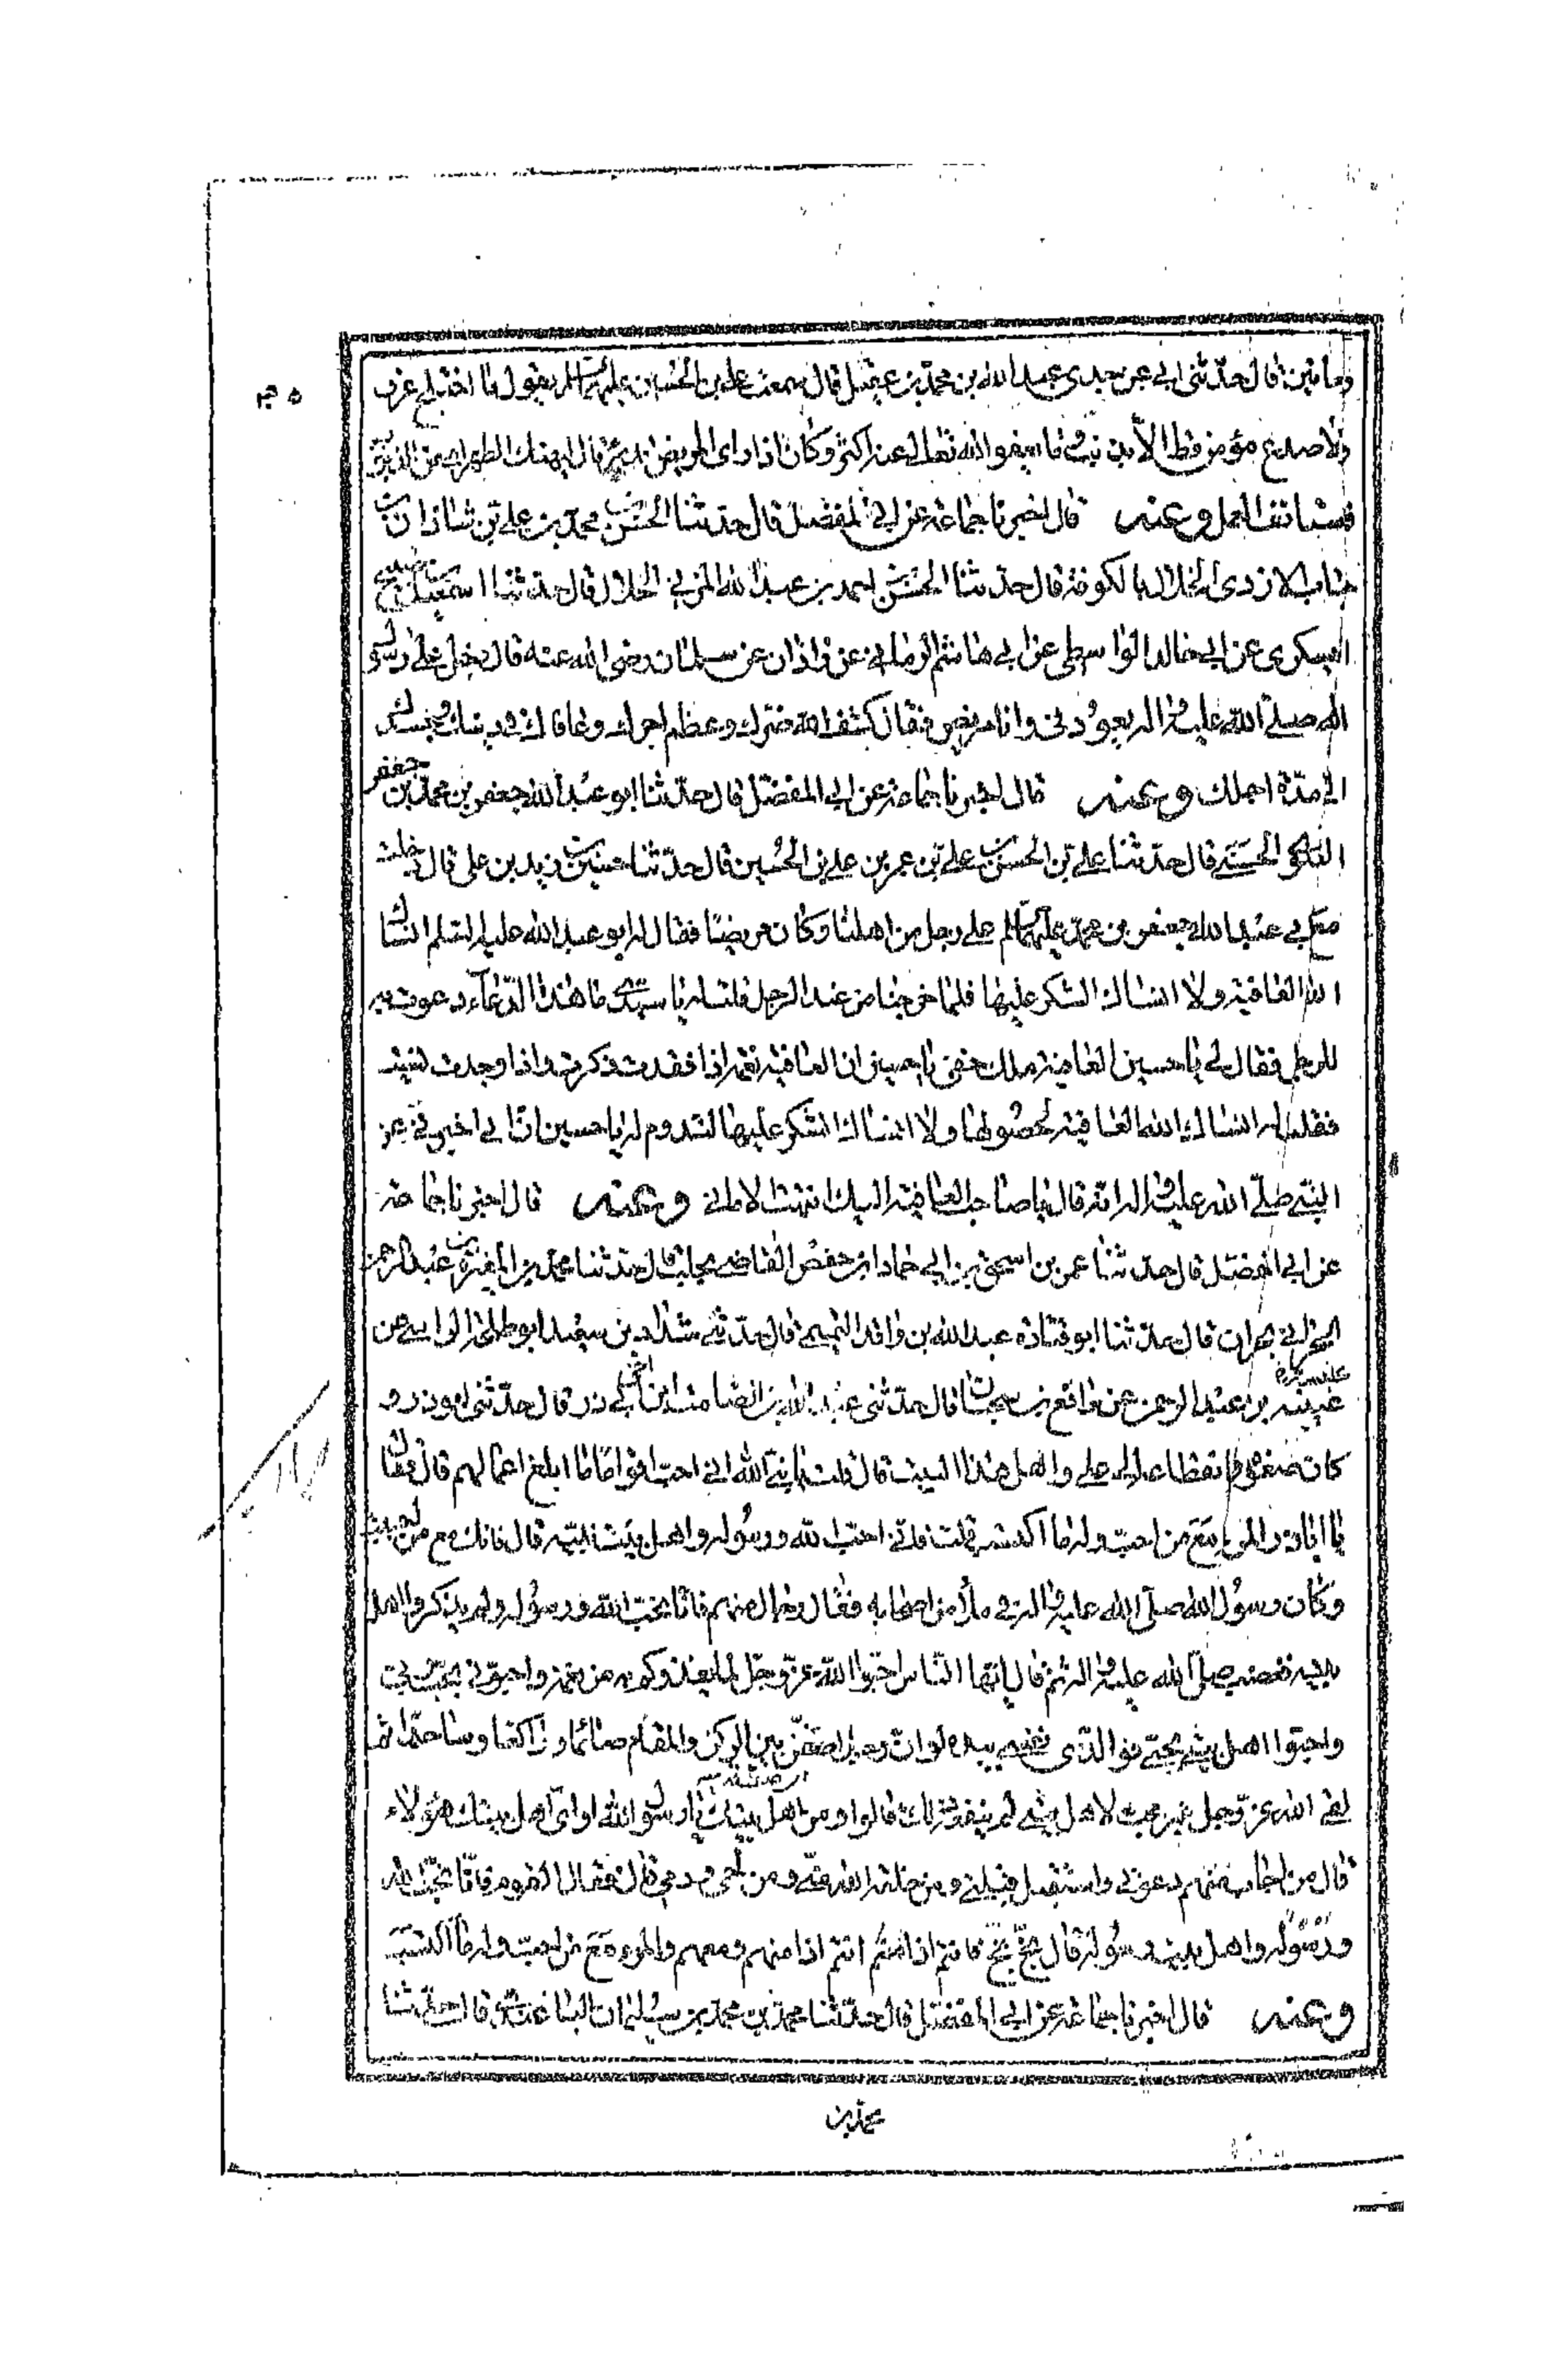 ومأتين قال حدثنى ابى عن جدى عبد الله بن محمد بن عقيل قال سمعت على بن الحسين عليهما السلام يقول ما اختلج عرق
ولا صدع مؤمن قط الا بذنبه وما يعفو الله تعالى عنه اكثر وكان اذا راى المريض قد برئ قال ليهنك الطهر من الذنوب
فاستانف العمل وعنه قال اخبرنا جماعة عن ابى المفضل قال حدثنا الحسن بن محمد بن على بن شاذان بن
حباب الازدى الخلال بالكوفة قال حدثنا الحسن بن احمد بن عبد الله المزنى الخلال قال حدثنا اسمعيل بن صبيح
اليسكرى عن ابى خالد الواسطى عن ابى هاشم الرمانى عن زاذان عن سلمان رضى الله عنه قال دخل على رسول
الله صلى الله عليه واله يعودنى وانا مريض فقال كشف الله ضرك وعظم اجرك وعافاك فى دينك وجسدك
الى مدة اجلك وعنه قال اخبرنا جماعة عن ابى المفضل قال حدثنا ابو عبد الله جعفر بن محمد بن جعفر
العلوى الحسنى قال حدثنا على بن الحسن بن على بن عمر بن على بن الحسين قال حدثنا حسين بن زيد بن على قال دخلت
مع ابى عبد الله جعفر بن محمد عليهما السلام على رجل من اهلنا وكان مريضا فقال له ابو عبد الله عليه السلم انساك
الله العافية ولا انساك الشكر عليها فلما خرجنا من عند الرجل قلت له يا سيدى ما هذا الدعاء دعوت به
للرجل فقال لى يا حسين العافية ملك خفى يا حسين ان العافية نعمة اذا فقدت ذكرت واذا وجدت نسيت
فقلت له انساك الله العافية لحصولها ولا انساك الشكر عليها لتدوم له يا حسين ان ابى اخبرنى عن
النبى صلى الله عليه واله انه قال يا صاحب العافية اليك انتهت الامانى وعنه قال اخبرنا جماعة
عن ابى المفضل قال حدثنا عمر بن اسحق بن ابى حماد بن حفص القاضى بحلب قال حدثنا محمد بن المغيرة بن عبد الرحمن
الحرانى بحران قال حدثنا ابو قتادة عبد الله بن واقد التميمى قال حدثنى شداد بن سعيد ابو طلحة الراسبى عن
عيينة بن عبد الرحمن عن واقع بن سحبان قال حدثنى عبد الله بن الصامت ابن اخى ابى ذر قال حدثنى ابو ذر و
كان صغوه وانقطاعه الى على واهل هذا البيت قال قلت يا نبى الله انى احب اقواما ما ابلغ اعمالهم قال فقال
يا اباذر المرء مع من احب وله ما اكتسب قلت فانى احب الله ورسوله واهل بيت نبيه قال فانك مع من احببت
وكان رسول الله صلى الله عليه واله فى ملأ من اصحابه فقال رجال منهم فانا نحب الله ورسوله ولم يذكروا اهل
بيته فغضب صلى الله عليه واله ثم قال ايها الناس احبوا الله عز وجل لما يغذوكم به من نعمه واحبونى بحب ربى
واحبوا اهل بيتى بحبى فو الذى نفسى بيده لو ان رجلا صفن بين الركن والمقام صائما وراكعا وساجدا ثم
لقى الله عز وجل غير محب لاهل بيتى لم ينفعه ذلك قالوا ومن اهل بيتك يا رسول الله او اى اهل بيتك هؤلاء
قال من اجاب منهم دعوتى واستقبل قبلتى ومن خلقه الله منى ومن لحمى ودمى قال فقال القوم فانا نحب الله
ورسوله واهل بيت رسوله قال بخ بخ فانتم اذا منهم انتم اذا منهم ومعهم والمرء مع من احب وله ما اكتسب
وعنه قال اخبرنا جماعة عن ابى المفضل قال حدثنا محمد بن محمد بن سليمان الباغندى قال حدثنا
محمد بن